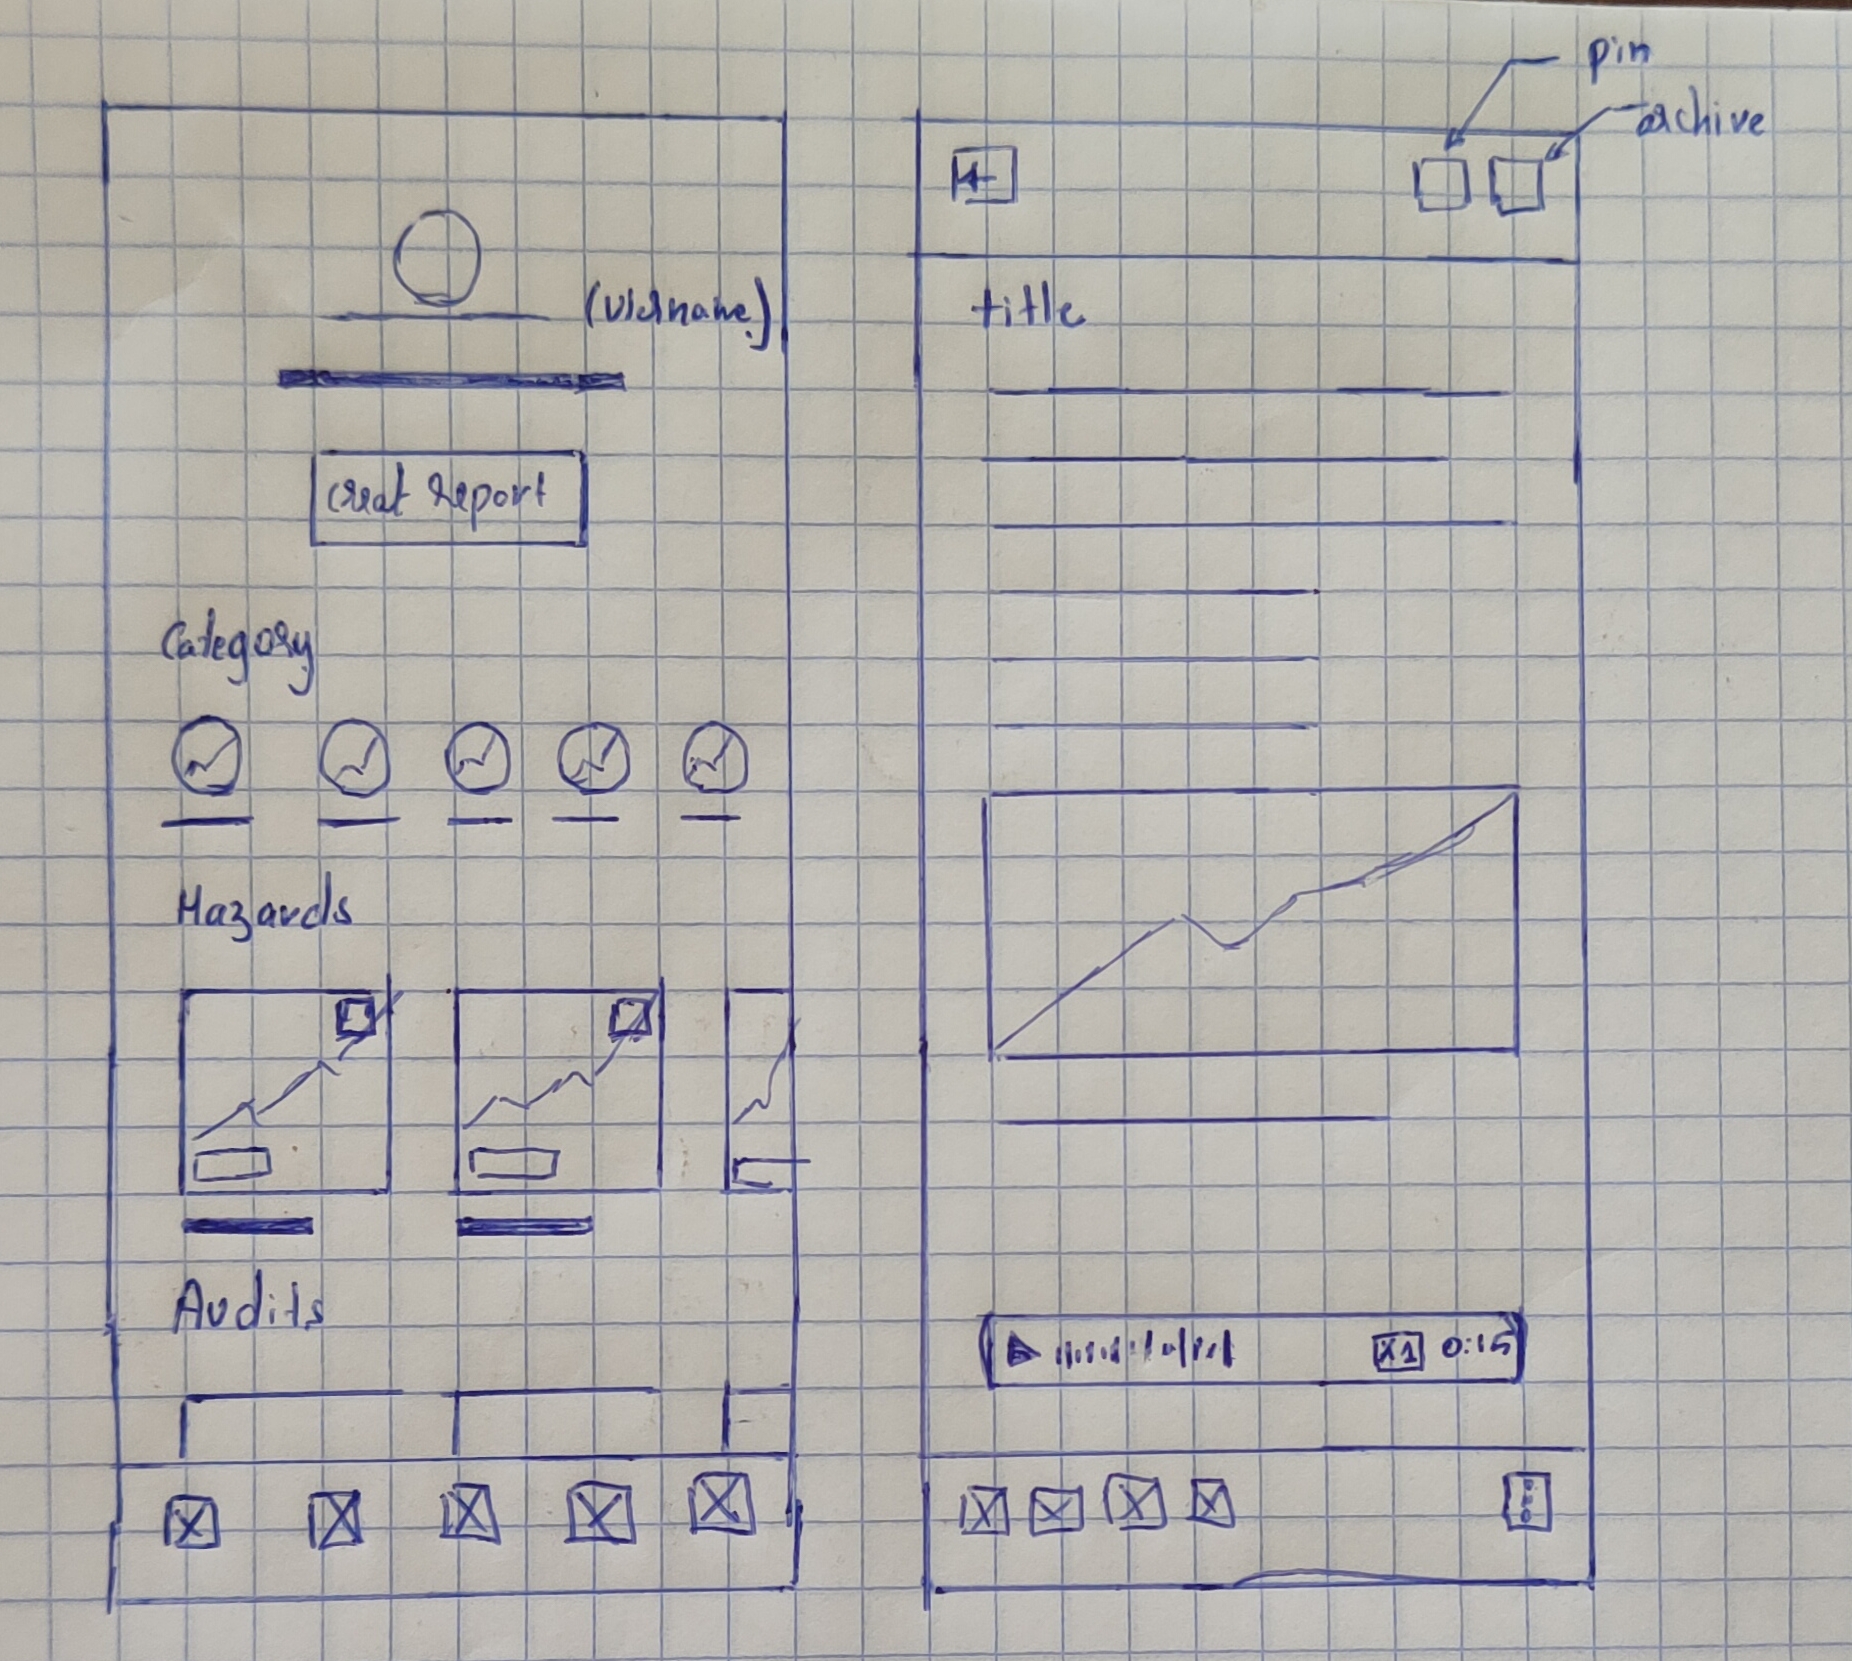 (Username)
Creat Report
Category
Hazards
Audits
pin
archive
title
X1 0:15